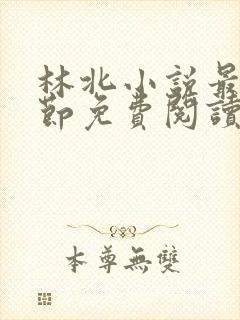 林北小說最
節免費閱讀
本尊無雙